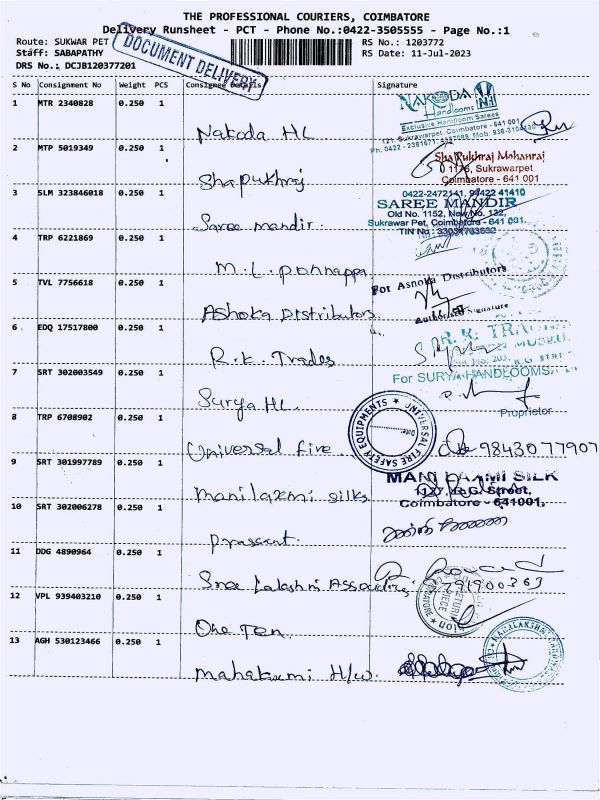 THE PROFESSIONAL COURIERS, COIMBATORE
Delivery Runsheet - PCT - Phone No.:0422-3505555 - Page No.:1
Route: SUKWAR PET
Staff: SABAPATHY
DRS No.: DCJB120377201
DOCUMENT DELIVERY
RS No.: 1203772
RS Date: 11-Jul-2023
S No Consignment No Weight PCS Consignee Details Signature
1 MTR 2340828 0.250 1
Nakoda HL
NAKODA
Handlooms
Exclusive Handloom Sarees
121, Sukrawarpet, Coimbatore - 641 001
2 MTP 5019349 0.250 1
Sha Pukhraj
Sha Pukhraj Mohanraj
1176, Sukrawarpet
Coimbatore - 641 001
3 SLM 323846018 0.250 1
Saree mandir
0422-2472141, 98422 41410
SAREE MANDIR
Old No. 1152, New No. 132,
Sukrawar Pet, Coimbatore - 641 001.
4 TRP 6221869 0.250 1
M.L. Ponnappa
5 TVL 7756618 0.250 1
Ashoka Distributors
For Ashoka Distributors
Authorised Signature
6 EDQ 17517800 0.250 1
R.K. Trades
7 SRT 302003549 0.250 1
Surya HL
For SURYA HANDLOOMS,
Proprietor
8 TRP 6708902 0.250 1
Universal fire
UNIVERSAL FIRE SAFETY EQUIPMENTS
Date:
9843077907
9 SRT 301997789 0.250 1
Manilaxmi silks
MANI LAXMI SILK
Coimbatore - 641001.
10 SRT 302006278 0.250 1
Prassant
11 DDG 4890964 0.250 1
Sree Lakshmi
12 VPL 939403210 0.250 1
One Ten
13 AGH 530123466 0.250 1
Mahalaxmi H/w